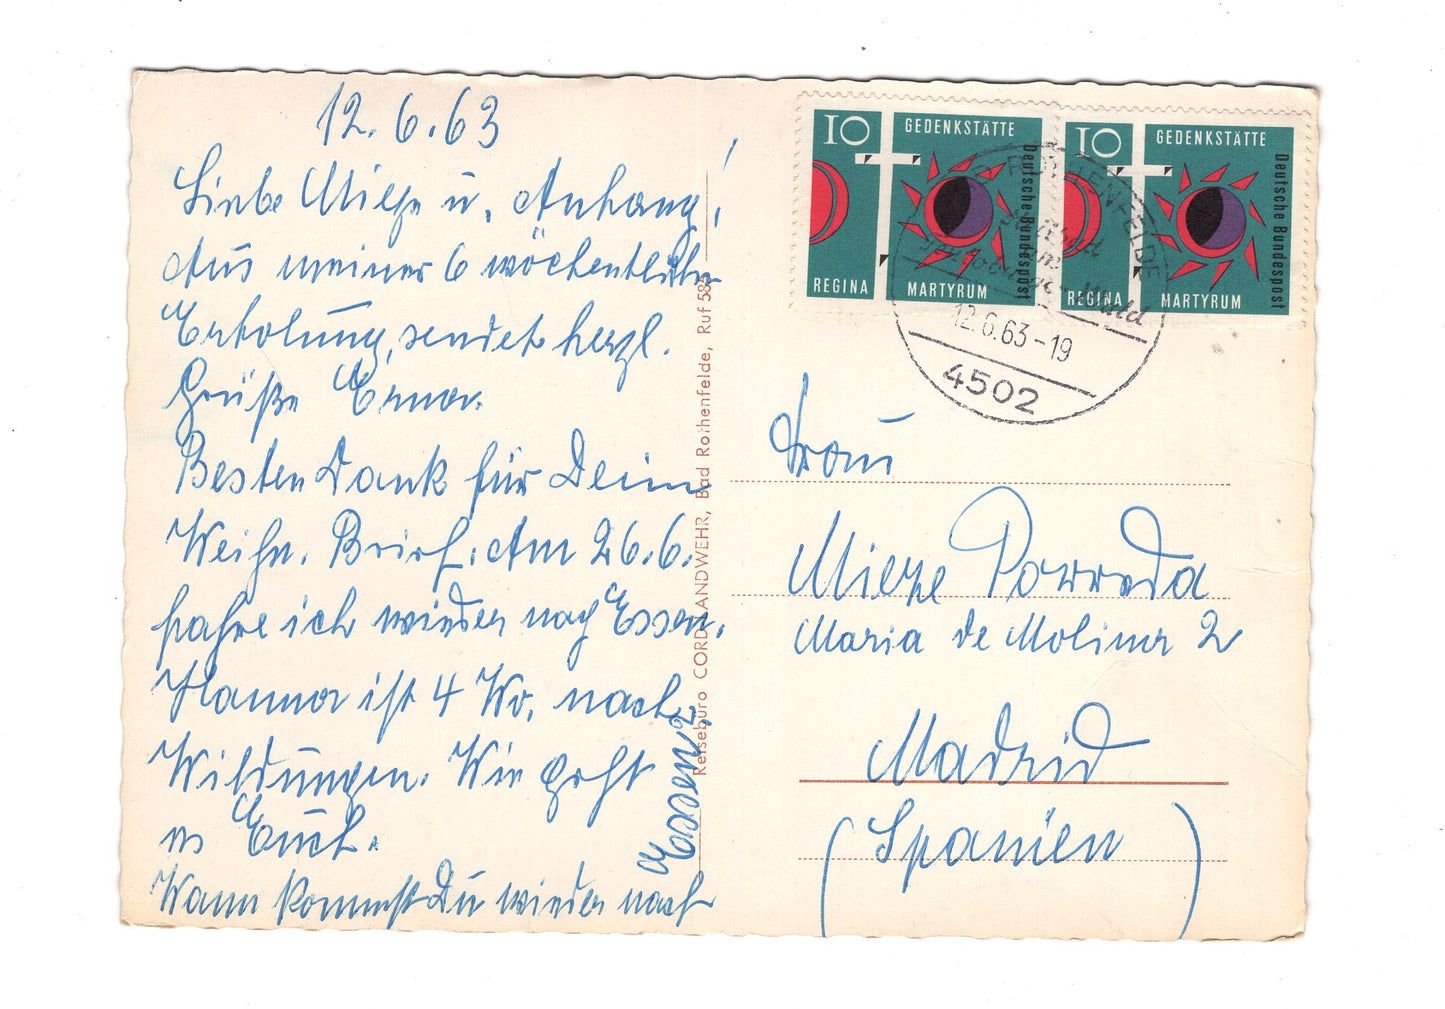 12.6.63
Liebe Mieze u. Anhang!
Aus meiner 6 wöchentlichen
Erholung, sendet herzl.
Grüße Erna.
Besten Dank für Deinen
Weihn. Brief. Am 26.6.
fahre ich wieder nach Essen.
Hanna ist 4 Wo. nach
Wildungen. Wie geht
es Euch.
Wann kommst Du wieder nach
Essen?
Reisebüro CORD LANDWEHR, Bad Rothenfelde, Ruf 585
10 GEDENKSTÄTTE
Deutsche Bundespost
REGINA MARTYRUM
10 GEDENKSTÄTTE
Deutsche Bundespost
REGINA MARTYRUM
ROTHENFELDE
Heilbad
am
Teutoburger Wald
12.6.63-19
4502
Frau
Mieze Parreda
Maria de Moliner 2
Madrid
(Spanien)